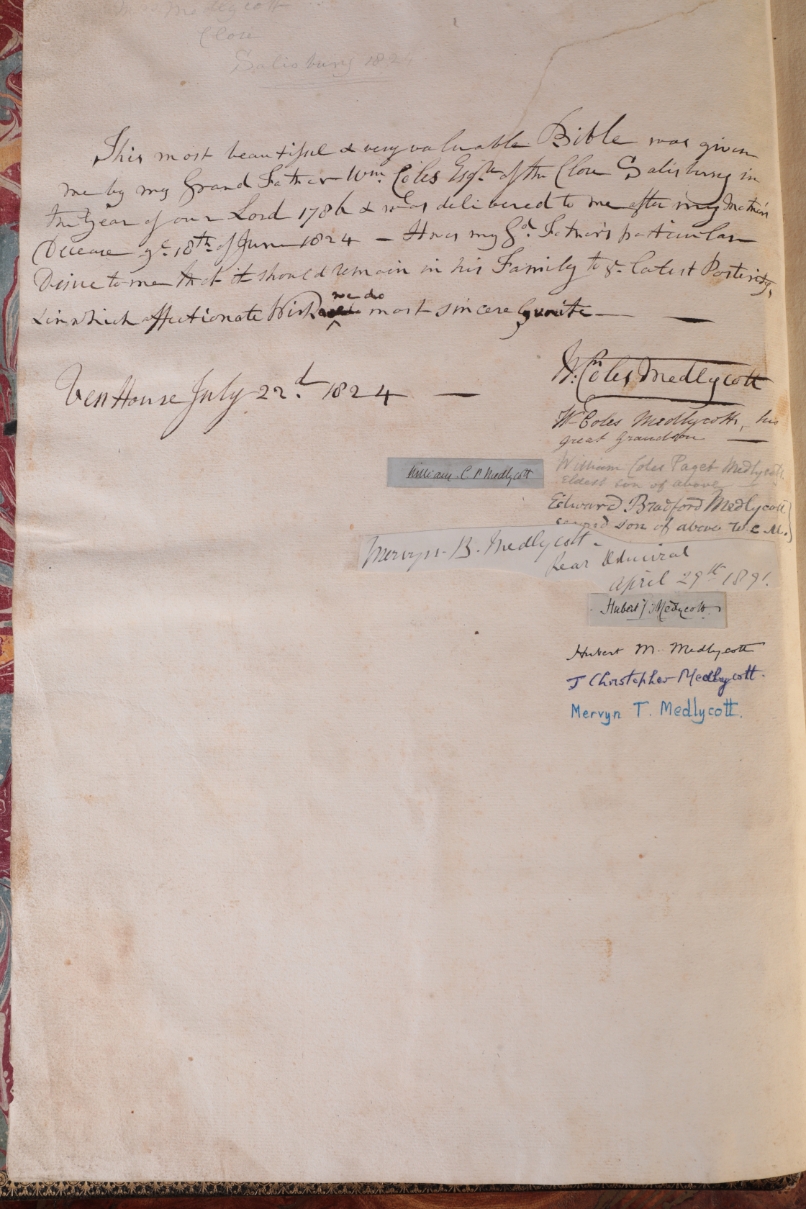 Medlycott
Close
Salisbury 182
This most beautiful & very valuable Bible was given
me by my Grand Father Wm. Coles Esqre of the Close Salisbury in
the Year of our Lord 1786 & was delivered to me after my Mother's
Decease ye 18th of June 1824 — It was my Gd. Father's particular
Desire to me that it should remain in his Family to ye latest Posterity,
& in which affectionate Wish we do most sincerely unite — —
Ven House July 22d 1824 —
Wm. Coles Medlycott
Wm Coles Medlycott, his
great grandson —
William C P Medlycott
William Coles Paget Medlycott
eldest son of above
Edward Bradford Medlycott
second son of above W.C.M.
Mervyn B. Medlycott -
Rear Admiral
April 29th 1891.
Hubert J. Medlycott
Hubert M. Medlycott
J Christopher Medlycott.
Mervyn T. Medlycott.